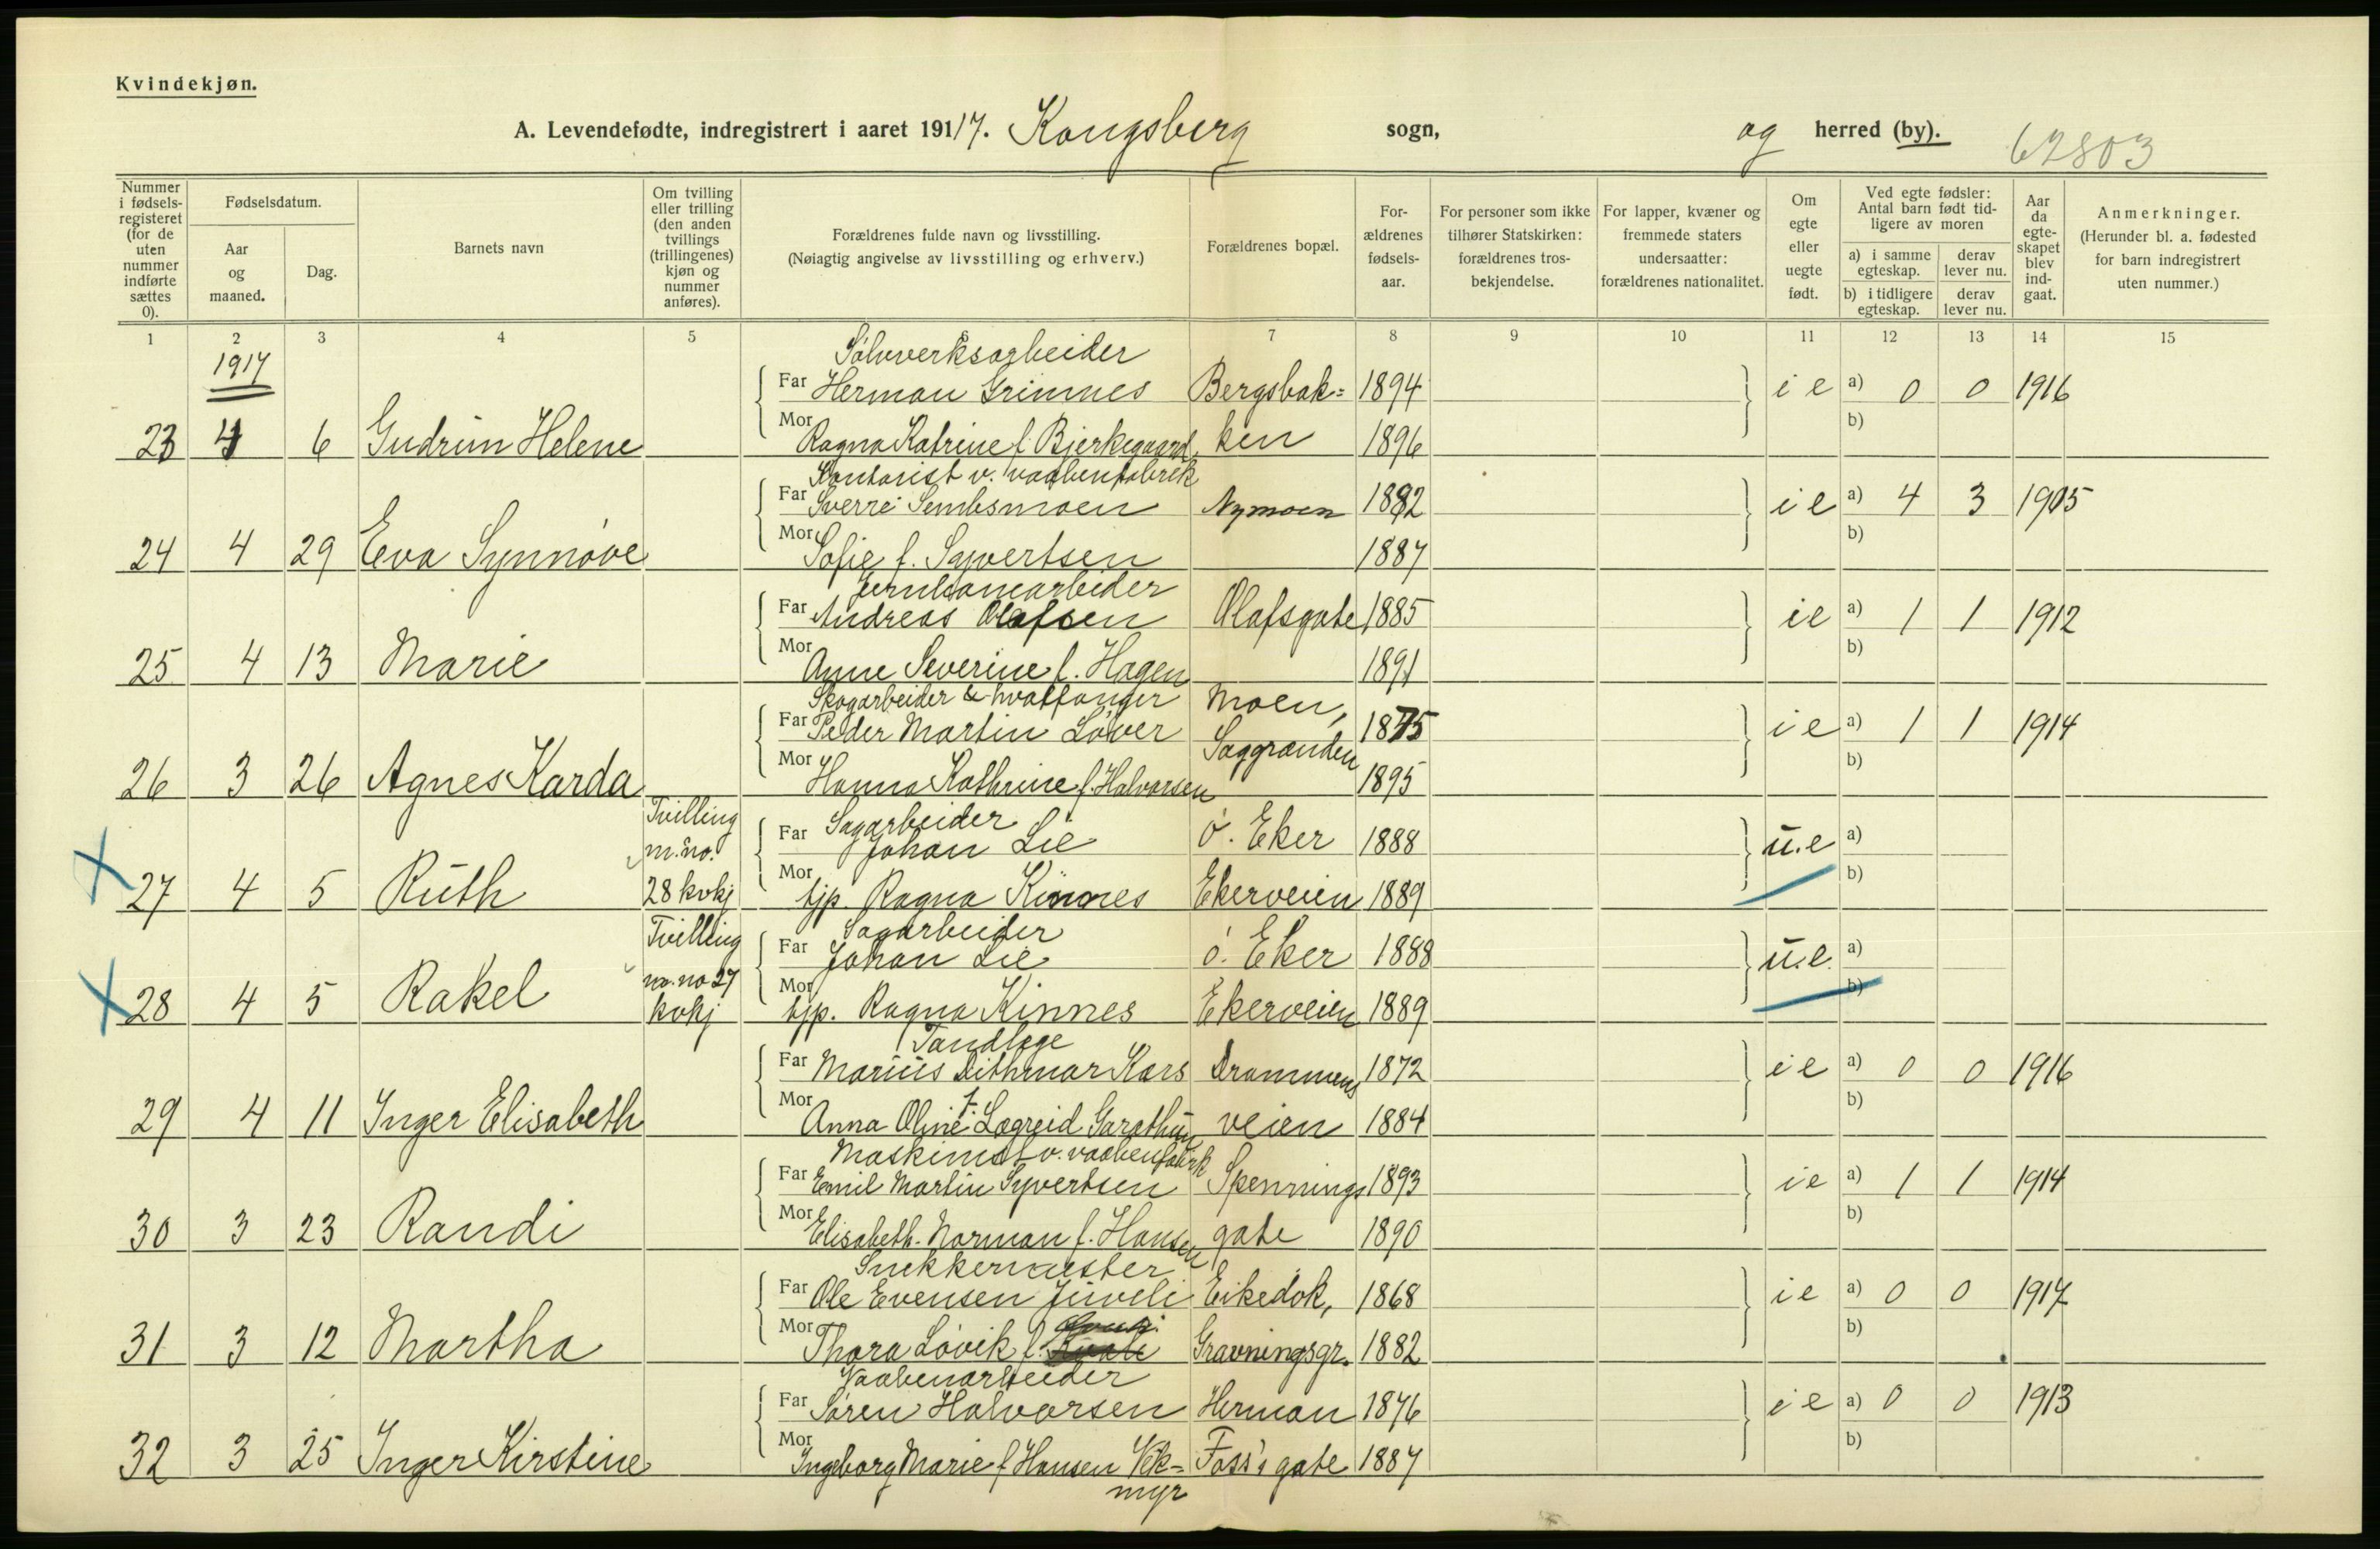 Kvindekjøn.
A. Levendefødte, indregistrert i aaret 1917. Kongsberg sogn, og herred (by).
62803
Nummer i fødselsregisteret (for de uten nummer indførte sættes 0).
Fødselsdatum.
Aar og maaned.
Dag.
Barnets navn
Om tvilling eller trilling (den anden tvillings (trillingenes) kjøn og nummer anføres).
Forældrenes fulde navn og livsstilling.
(Nøiagtig angivelse av livsstilling og erhverv.)
Forældrenes bopæl.
Forældrenes fødselsaar.
For personer som ikke tilhører Statskirken: forældrenes trosbekjendelse.
For lapper, kvæner og fremmede staters undersaatter: forældrenes nationalitet.
Om egte eller uegte født.
Ved egte fødsler: Antal barn født tidligere av moren
a) i samme egteskap.
derav lever nu.
b) i tidligere egteskap.
derav lever nu.
Aar da egteskapet blev indgaat.
Anmerkninger.
(Herunder bl. a. fødested for barn indregistrert uten nummer.)
1 2 3 4 5 6 7 8 9 10 11 12 13 14 15
1917
Sølvverksarbeider
Far Herman Grimnes Bergsbak= 1894 i e a) 0 0 1916
23 4 6 Gudrun Helene Mor Ragna Katrine f. Bjerkegaard ken 1896 b)
Kontorist v. vaabenfabrik
Far Sverre Sembsmoen Nymoen 1882 i e a) 4 3 1905
24 4 29 Eva Synnøve Mor Sofie f. Syvertsen 1887 b)
Jernbanearbeider
Far Andreas Olafsen Olafsgate 1885 i e a) 1 1 1912
25 4 13 Marie Mor Anne Severine f. Hagen 1891 b)
Skogarbeider & hvalfanger Moen,
Far Peder Martin Løver Saggranden 1875 i e a) 1 1 1914
26 3 26 Agnes Karda Mor Hanna Kathrine f. Halvorsen 1895 b)
Tvilling m. no. 28 kvkj
Sagarbeider
Far Johan Lie ø. Eker 1888 u.e a)
27 4 5 Ruth Mor tjp. Ragna Kinnes Ekerveien 1889 b)
Tvilling m. no 27 kvkj
Sagarbeider
Far Johan Lie ø. Eker 1888 u.e. a)
28 4 5 Rakel Mor tjp. Ragna Kinnes Ekerveien 1889 b)
Tandlæge
Far Marius Dithmar Kars Drammens 1872 i e a) 0 0 1916
29 4 11 Inger Elisabeth Mor Anna Oline f. Lægreid Garathun veien 1884 b)
Maskinist v. vaabenfabrik
Far Emil Martin Syvertsen Spennings 1893 i e a) 1 1 1914
30 3 23 Randi Mor Elisabeth Norman f. Hansen gate 1890 b)
Snekkermester
Far Ole Evensen Juveli Eikedok, 1868 i e a) 0 0 1917
31 3 12 Martha Mor Thora Løvik f. Gravningsgr. 1882 b)
Vaabenarbeider
Far Søren Halvorsen Herman 1876 i e a) 0 0 1913
32 3 25 Inger Kirstine Mor Ingeborg Marie f Hansen Vek= Foss's gate 1887 b)
myr